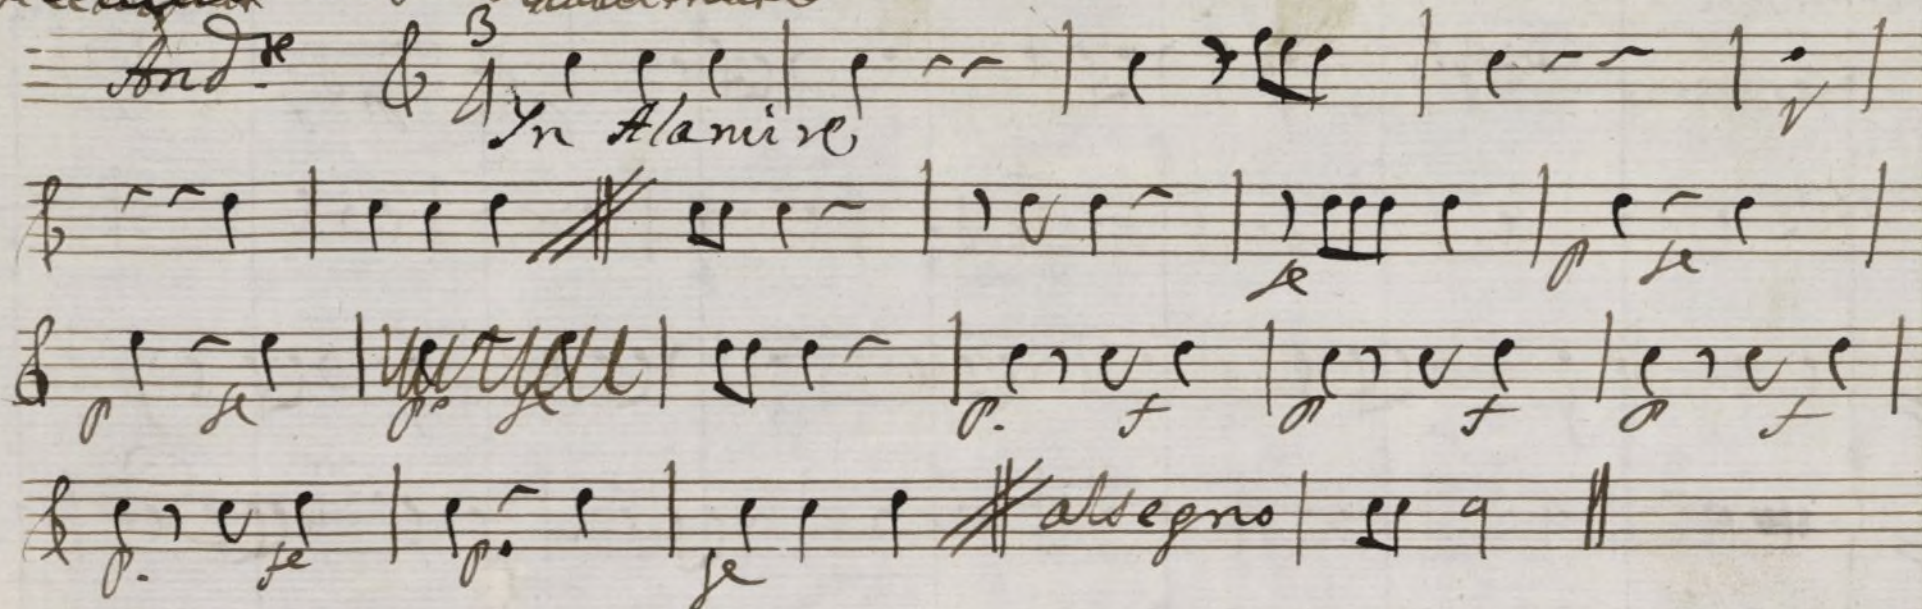 And.te 3 4
In Alamire
fe p fe
p fe p. f p f p f
p. fe p. fe al segno